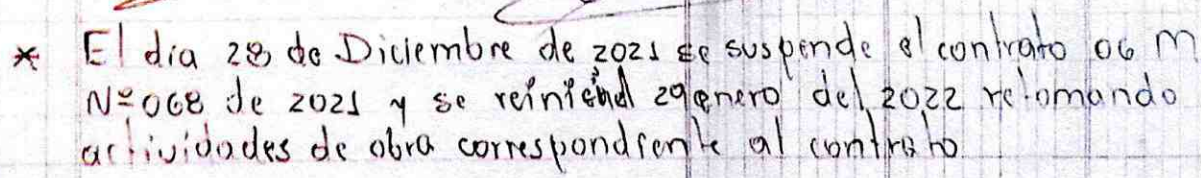 * El dia 28 de Diciembre de 2021 se suspende el contrato 06 M
Nº 068 de 2021 y se reinicia el 29 enero del 2022 retomando
actividades de obra correspondiente al contrato